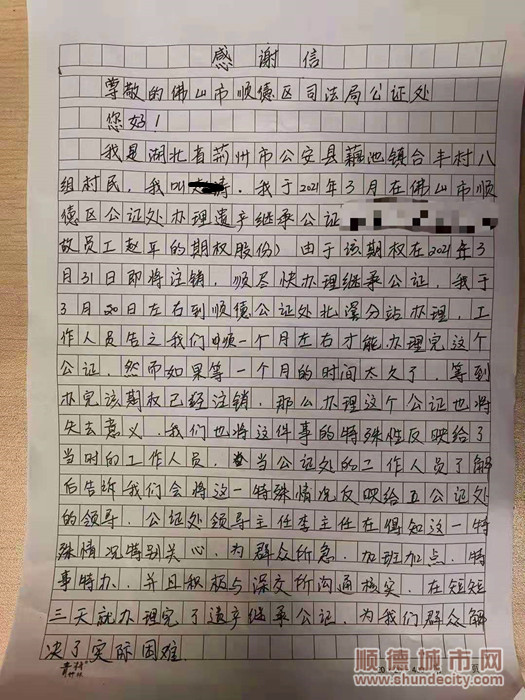 感谢信
尊敬的佛山市顺德区司法局公证处
您好！
我是湖北省荊州市公安县藕池镇合丰村八
组村民，我叫。我于2021年3月在佛山市顺
德区公证处办理遗产继承公证
故员工赵年的期权股份）由于该期权在2021年3
月31日即将注销，顺尽快办理继承公证，我于
3月20日左右到顺德公证处北滘分站办理，工
作人员告之我们顺一个月左右才能办理完这个
公证，然而如果等一个月的时间太久了，等到
办完该期权已经注销，那么办理这个公证也将
失去意义，我们也将这件事的特殊性反映给了
当时的工作人员，当公证处的工作人员了解
后告诉我们会将这一特殊情况反映给公证处
的领导，公证处领导主任李主任在得知这一特
殊情况特别关心，为群众所急，加班加点，特
事特办，并且积极与深交所沟通核实，在短短
三天就办理完了遗产继承公证，为我们群众解
决了实际困难
顺德城市网
www.shundecity.com